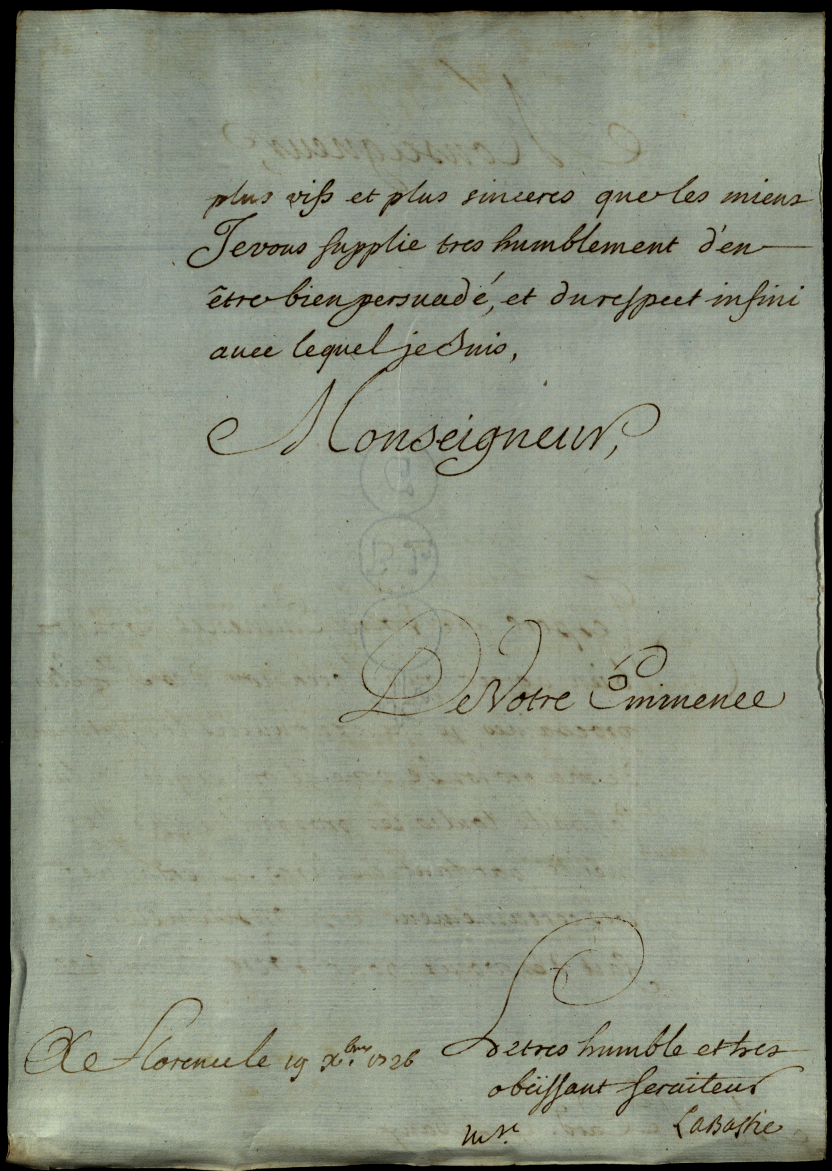 plus vifs et plus sinceres que les miens
Je vous supplie tres humblement d'en
être bien persuadé, et du respect infini
avec lequel je suis,
Monseigneur,
De Votre Eminence
De Florence le 19 Xbre 1726
Le tres humble et tres
obeïssant serviteur
LaBastie